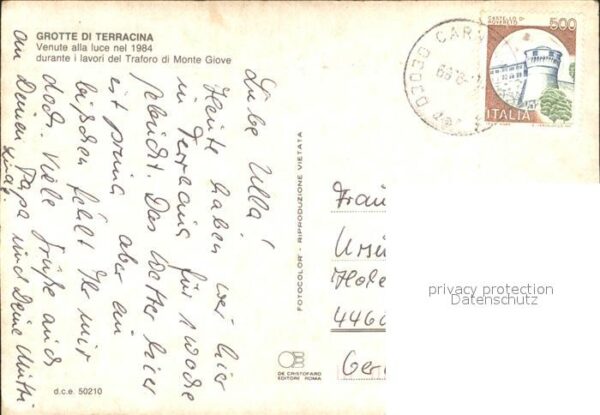 GROTTE DI TERRACINA
Venute alla luce nel 1984
durante i lavori del Traforo di Monte Giove
Liebe Ulla!
Heute haben wir hier
in Terracina für 1 Woche
gebucht. Das Wetter hier
ist prima aber ein
bißchen fehlt Ihr mir
doch. Viele Grüße auch
an Deinen Papa und Deine Mutti.
d.c.e. 50210
FOTOCOLOR - RIPRODUZIONE VIETATA
DE CRISTOFARO
EDITORE ROMA
CASTELLO DI
ROVERETO
500
ITALIA
03030 CAR
Frau
Ursu
Hole
4460
Ger
privacy protection
Datenschutz